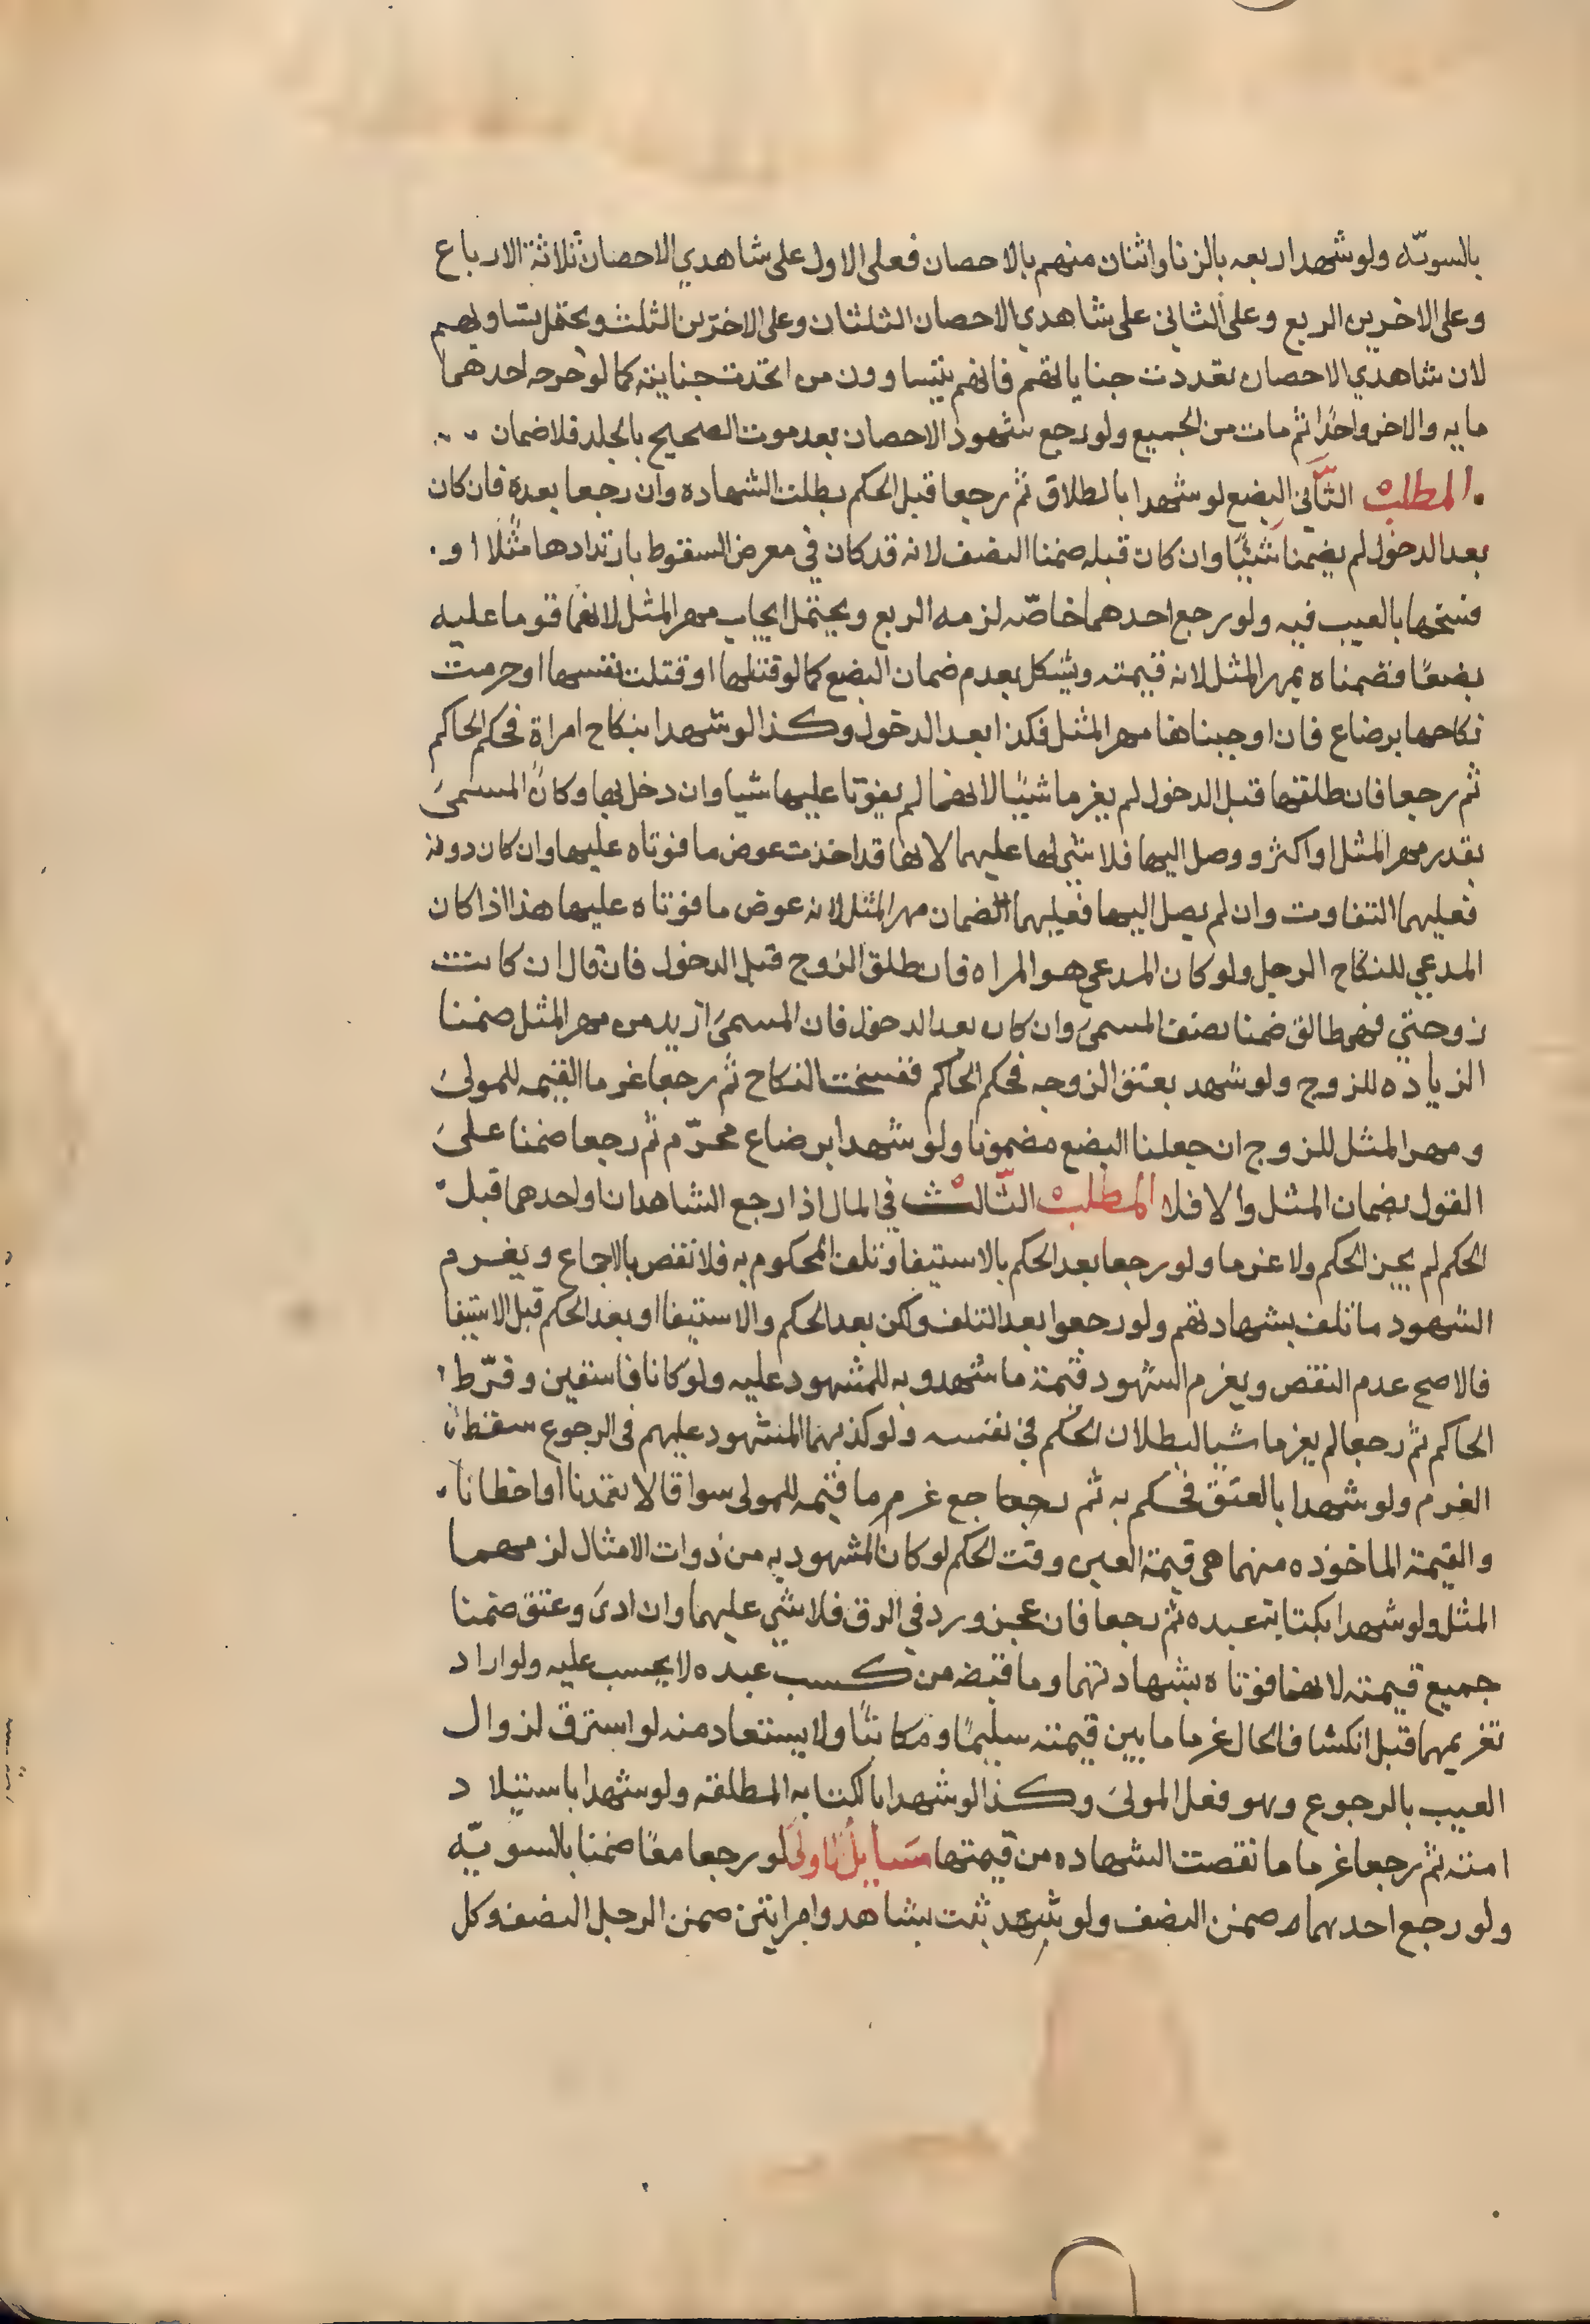 بالسويّه ولو شهد اربعه بالزنا واثنان منهم بالاحصان فعلى الاول على شاهدي الاحصان ثلاثة الارباع
وعلى الاخرين الربع وعلى الثاني على شاهدي الاحصان الثلثان وعلى الاخرين الثلث ويحتمل تساويهم
لان شاهدي الاحصان تعددت جناياتهم فانهم يتساوون من اتحدت جنايته كما لو جرحه احدهما
مايه والاخر واحدًا ثم مات من الجميع ولو رجع شهود الاحصان بعد موت الصحيح بالجلد فلا ضمان
المطلب الثاني البضع لو شهدا بالطلاق ثم رجعا قبل الحكم بطلت الشهاده وان رجعا بعده فان كان
بعد الدخول لم يضمنا شيئًا وان كان قبله ضمنا النصف لانه قد كان في معرض السقوط بارتدادها مثلا او
فسخها بالعيب فيه ولو رجع احدهما خاصّه لزمه الربع ويحتمل ايجاب مهر المثل لانهما قوما عليه
بضعًا فضمناه بمهر المثل لانه قيمته ويشكل بعدم ضمان البضع كما لو قتلها او قتلت نفسها او حرمت
نكاحها برضاع فان اوجبنا هنا مهر المثل فكذا بعد الدخول وكذا لو شهدا بنكاح امراة فحكم الحاكم
ثم رجعا فان طلقها قبل الدخول لم يغرما شيئًا لانهما لم يفوتا عليها شيا وان دخل بها وكان المسمىَ
بقدر مهر المثل او اكثر ووصل اليها فلا شي لها عليهما لانها قد اخذت عوض ما فوتاه عليها وان كان دونه
فعليهما التفاوت وان لم يصل اليها فعليهما الضمان مهر المثل لانه عوض ما فوتاه عليها هذا اذا كان
المدعي للنكاح الرجل ولو كان المدعي هو المراه فان طلق الزوج قبل الدخول فان قال ان كانت
زوجتي فهي طالق ضمنا نصف المسمىَ وان كان بعد الدخول فان المسمىَ ازيد من مهر المثل ضمنا
الزياده للزوج ولو شهد بعتق الزوجه فحكم الحاكم ففسخت النكاح ثم رجعا غرما القيمه للمولىَ
ومهر المثل للزوج ان جعلنا البضع مضمونا ولو شهدا برضاع محرّم ثم رجعا ضمنا علىَ
القول بضمان المثل والا فلا المطلب الثالث في المال اذا رجع الشاهدان او احدهما قبل
الحكم لم يجز الحكم ولا غرما ولو رجعا بعد الحكم بالاستيفا وتلف المحكوم به فلا نقض بالاجماع ويغرم
الشهود ما تلف بشهادتهم ولو رجعوا بعد التلف ولكن بعد الحكم والاستيفا او بعد الحكم قبل الاستيفا
فالاصح عدم النقض ويغرم الشهود قيمة ما شهدو به للمشهود عليه ولو كانا فاسقين وفرّط
الحاكم ثم رجعا لم يغرما شيا لبطلان الحكم في نفسه ولو كذبهما المشهود عليهم في الرجوع سقط
الغرم ولو شهدا بالعتق فحكم به ثم رجعا جع غرم ما قيمه للمولى سوا قالا تعمدنا او اخطانا
والقيمة الماخوذه منهما هي قيمة العين وقت الحكم لو كان المشهود به من ذوات الامثال لزمهما
المثل ولو شهدا بكتابة عبده ثم رجعا فان عجز ورد في الرق فلا شي عليهما وان ادىَ وعتق ضمنا
جميع قيمته لانهما فوتاه بشهادتهما وما قبضه من كسب عبده لا يحسب عليه ولو اراد
تغريمهما قبل انكشاف الحال غرما ما بين قيمته سليمًا ومكاتبًا ولا يستعاد منه لو استرق لزوال
العيب بالرجوع وهو فعل المولىَ وكذا لو شهدا بالكتابه المطلقه ولو شهدا باستيلاد
امته ثم رجعا غرما ما نقصت الشهاده من قيمتها مسايل الاولىَ لو رجعا معًا ضمنا بالسويّه
ولو رجع احدهما ضمن النصف ولو ثبت بشاهد وامراتين ضمن الرجل النصف وكل